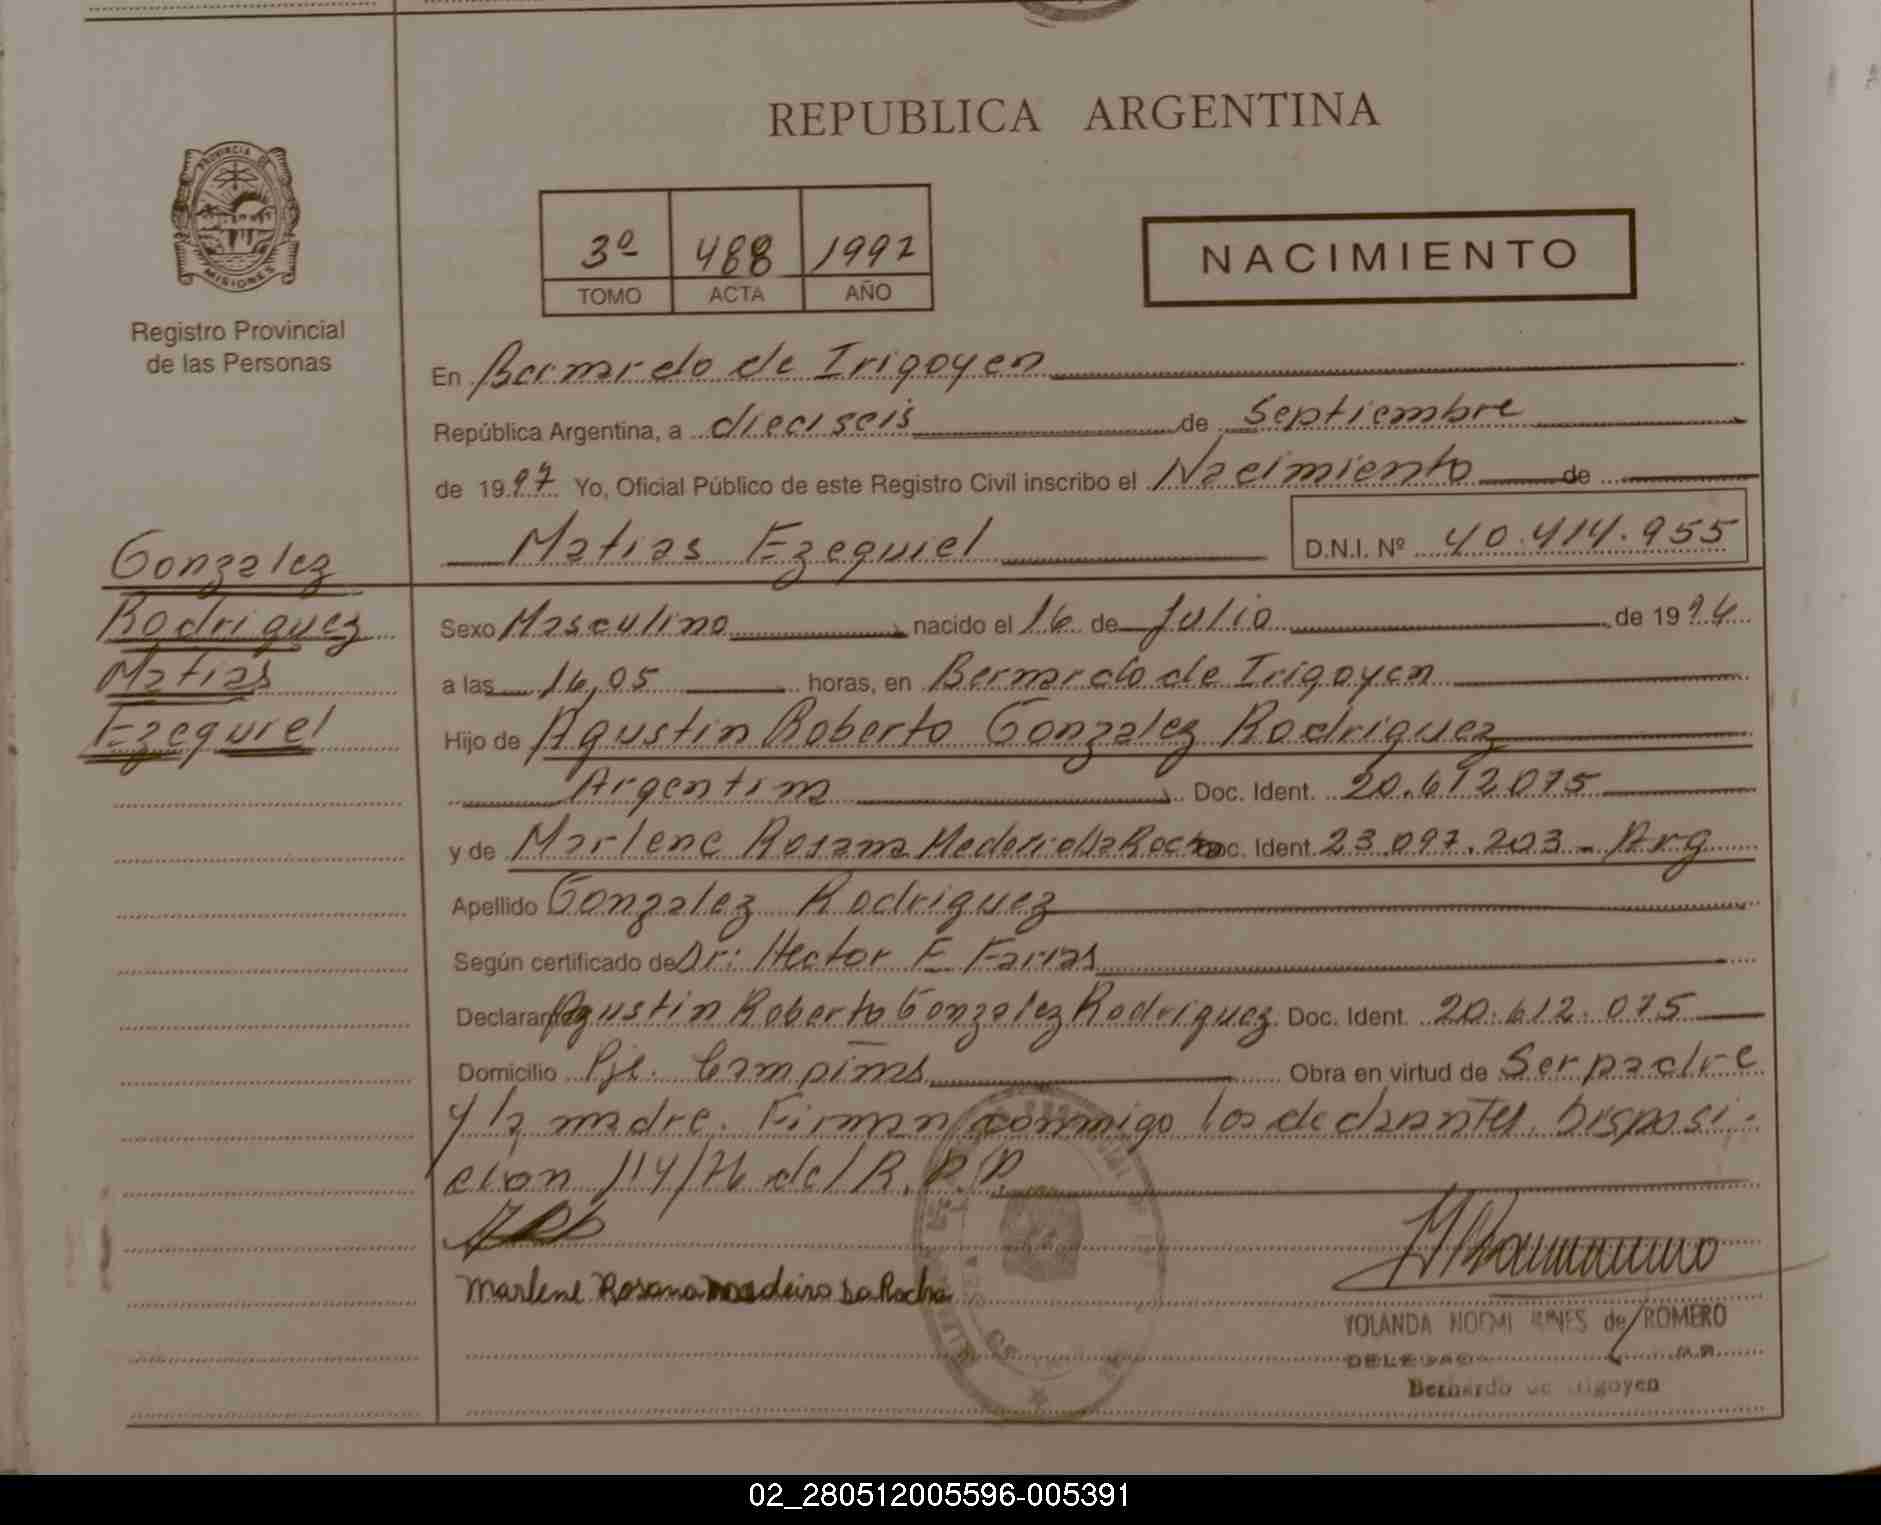 REPUBLICA ARGENTINA
PROVINCIA DE
MISIONES
Registro Provincial
de las Personas
3º 488 1997
TOMO ACTA AÑO
NACIMIENTO
En Bernardo de Irigoyen
República Argentina, a dieciseis de Septiembre
de 1997 Yo, Oficial Público de este Registro Civil inscribo el Nacimiento de
Matias Ezequiel D.N.I. Nº 40.414.955
Gonzalez
Rodriguez
Matias
Ezequiel
Sexo Masculino nacido el 16 de Julio de 19
a las 16,05 horas, en Bernardo de Irigoyen
Hijo de Agustin Roberto Gonzalez Rodriguez
Argentino Doc. Ident. 20.612075
y de Marlene Rosana Medeiro Da Rocha Doc. Ident. 23.097.203 - Arg
Apellido Gonzalez Rodriguez
Según certificado de Dr: Hector E Farias
Declarante Agustin Roberto Gonzalez Rodriguez Doc. Ident. 20.612.075
Domicilio Pje. Campiñas Obra en virtud de Ser padre
y la madre. Firman conmigo los declarantes. Disposi-
cion 114/76 del R.P.P.
Marlene Rosana medeiro Da Rocha
YOLANDA NOEMI de ROMERO
DELEGADA
Bernardo de Irigoyen
02_280512005596-005391